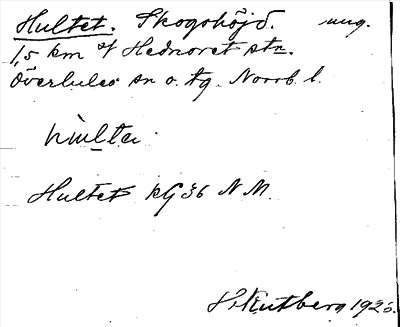 Hultet. Skogshöjd. ung.
1,5 km v Hednoret stn.
Överluleå sn o. tg. Norrb. l.
hùlta
Hultet kG 36 N M.
H. Kutberg 192